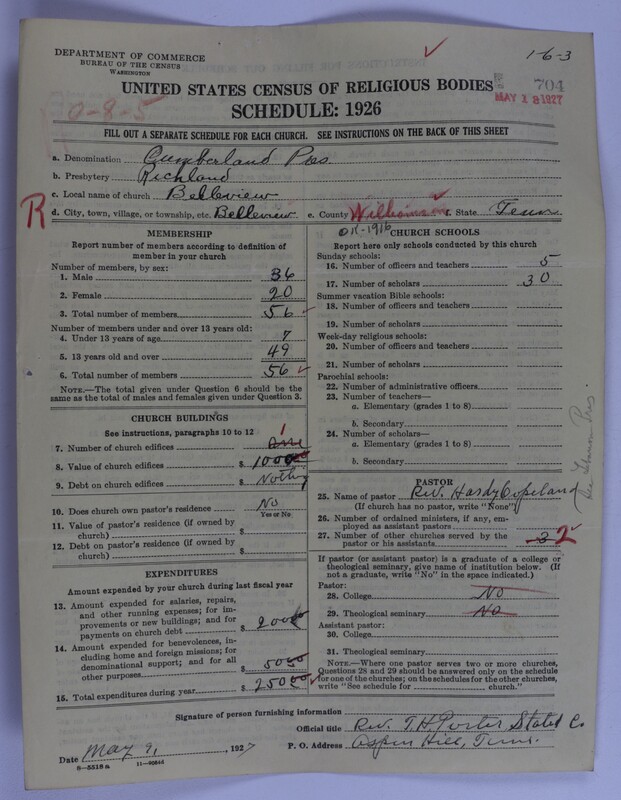 DEPARTMENT OF COMMERCE
BUREAU OF THE CENSUS
WASHINGTON
1-6-3
UNITED STATES CENSUS OF RELIGIOUS BODIES
704
MAY 18 1927
0-8-5
SCHEDULE: 1926
FILL OUT A SEPARATE SCHEDULE FOR EACH CHURCH. SEE INSTRUCTIONS ON THE BACK OF THIS SHEET
a. Denomination Cumberland Pres
b. Presbytery Richland
c. Local name of church Belleview
R d. City, town, village, or township, etc. Belleview e. County Williamson f. State Tenn
OK-1916
MEMBERSHIP
Report number of members according to definition of
member in your church
Number of members, by sex:
1. Male 36
2. Female 20
3. Total number of members 56
Number of members under and over 13 years old:
4. Under 13 years of age 7
5. 13 years old and over 49
6. Total number of members 56
NOTE.—The total given under Question 6 should be the
same as the total of males and females given under Question 3.
CHURCH BUILDINGS
See instructions, paragraphs 10 to 12
7. Number of church edifices One 1
8. Value of church edifices $ 1000
9. Debt on church edifices $ Nothing
10. Does church own pastor's residence No
Yes or No
11. Value of pastor's residence (if owned by
church) $
12. Debt on pastor's residence (if owned by
church) $
EXPENDITURES
Amount expended by your church during last fiscal year
13. Amount expended for salaries, repairs,
and other running expenses; for im-
provements or new buildings; and for
payments on church debt $ 200
14. Amount expended for benevolences, in-
cluding home and foreign missions; for
denominational support; and for all
other purposes $ 50 00
15. Total expenditures during year $ 250 00
CHURCH SCHOOLS
Report here only schools conducted by this church
Sunday schools:
16. Number of officers and teachers 5
17. Number of scholars 30
Summer vacation Bible schools:
18. Number of officers and teachers
19. Number of scholars
Week-day religious schools:
20. Number of officers and teachers
21. Number of scholars
Parochial schools:
22. Number of administrative officers
23. Number of teachers—
a. Elementary (grades 1 to 8)
b. Secondary
24. Number of scholars—
a. Elementary (grades 1 to 8)
b. Secondary
PASTOR
25. Name of pastor Rev. Hardy Copeland
(If church has no pastor, write "None")
26. Number of ordained ministers, if any, em-
ployed as assistant pastors
27. Number of other churches served by the
pastor or his assistants 3 2
If pastor (or assistant pastor) is a graduate of a college or
theological seminary, give name of institution below. (If
not a graduate, write "No" in the space indicated.)
Pastor:
28. College No
29. Theological seminary No
Assistant pastor:
30. College
31. Theological seminary
NOTE.—Where one pastor serves two or more churches,
Questions 28 and 29 should be answered only on the schedule
for one of the churches; on the schedules for the other churches,
write "See schedule for church."
Signature of person furnishing information
Official title Rev. T. H. Porter Stated C.
Date May 9, 1927 P. O. Address Aspen Hill, Tenn.
8—5518a